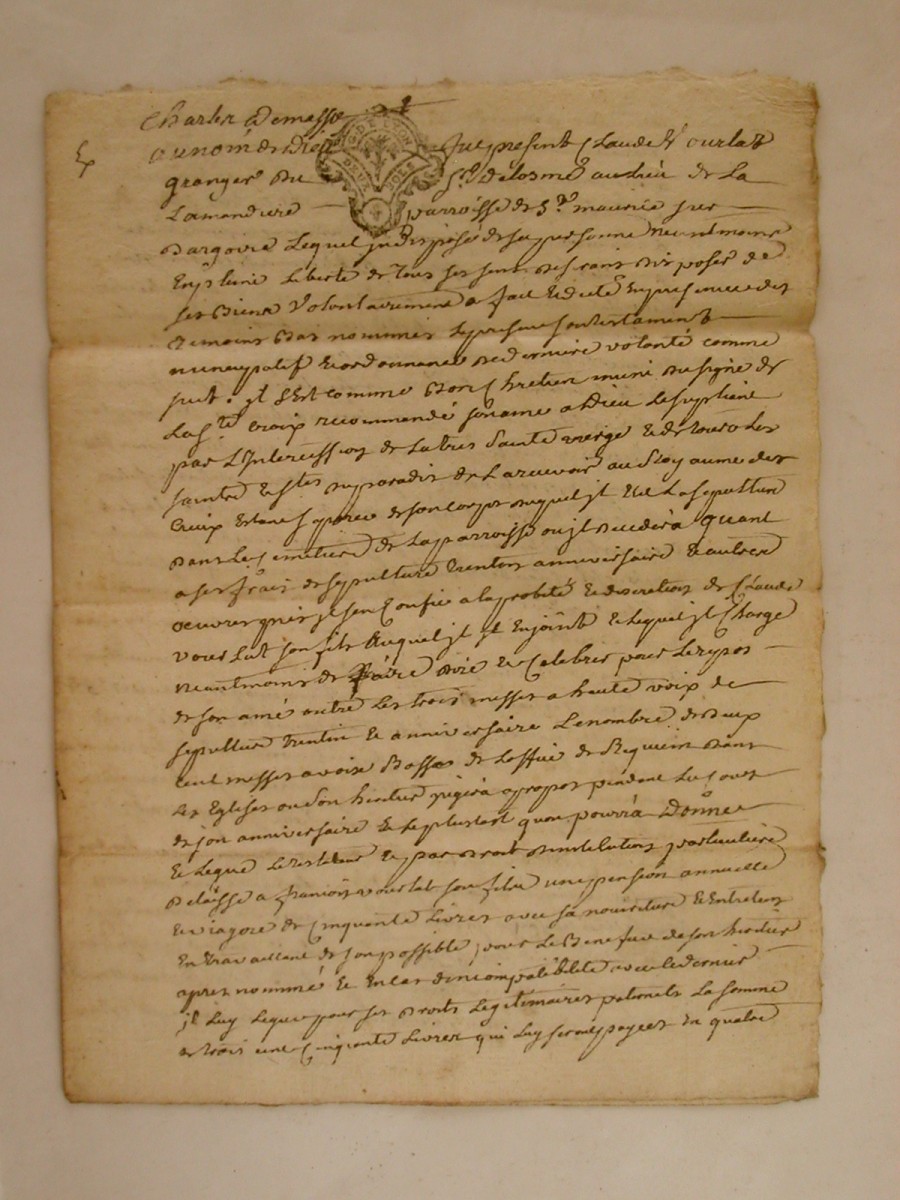 Charles Demasso
Ex
au nom de Dieu fut present Claude Vourlat
G. DE LYON
DEUX SOLS
granger du Sr. Delosme au lieu de La
Lamandiere parroisse de St. maurice sur
dargoire Lequel indisposé de sa personne neantmoins
En pleine Liberté de tous ses sens desirant disposer de
ses Biens Volontairement a fait et dicté En presence des
temoins Bas nommés Le present son testament
nuncupatif et ordonnance de derniere volonté comme
suit. jl s'Est comme Bon Chretien muni du signe de
La Ste. Croix recommandé son ame a Dieu Le supliant
par L'Intercession de La tres Sainte vierge et de tous Les
saints et stes du paradis de La recevoir au Royaume des
Cieux Estant separée de son corps duquel jl Elit La sepulture
dans Le Cimetiere de La parroisse ou jl decedera quant
a ses frais de sepulture trentin anniversaire et autres
oeuvres pies jl s'en Confie a La probité et discretion de Claude
vourlat son fils auquel jl Enjoint et Lequel jl Charge
neantmoins de faire dire et Celebrer pour Le repos
de son ame outre Les trois messes a haute voix de
sepulture trentin et anniversaire Le nombre de deux
cent messes a voix Basse de L'office de Requiem dans
Les Eglises ou son heritier jugera apropos pendant Le Cours
de son anniversaire et Le plustost quon pourra Donne
et Legue Le testateur et par droit d'institution particuliere
delaisse a francois vourlat son fils une pension annuelle
et viagere de Cinquante Livres avec sa nouriture et Entretien
En travaillant de son possible pour Le Benefice de son heritier
apres nommé et En cas d'incompatibilité avec le dernier
jl Luy Legue pour ses droits Legitimaires paternels La somme
de trois cent Cinquante Livres qui Luy seront payees En quatre